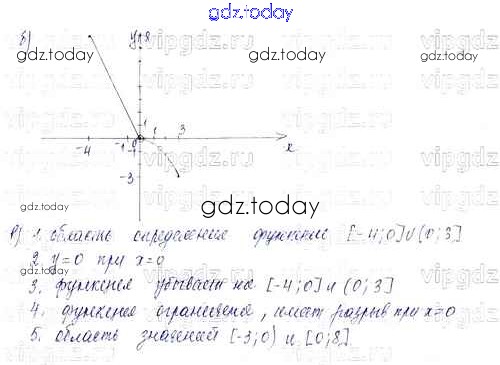 gdz.today
б) y 8
gdz.today gdz.today
1
-4 -1 0 1 3 x
-1
-3
gdz.today
в) 1. область определения функции [-4;0]∪(0;3]
2. y=0 при x=0
3. функция убывает на [-4;0] и (0;3]
4. функция ограничена, имеет разрыв при x=0
5. область значений [-3;0) и [0;8]
gdz.today gdz.today
gdz.today